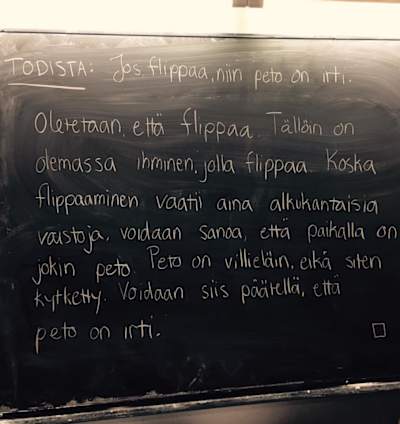 TODISTA: Jos flippaa, niin peto on irti.
Oletetaan, että flippaa. Tällöin on
olemassa ihminen, jolla flippaa. Koska
flippaaminen vaatii aina alkukantaisia
vaistoja, voidaan sanoa, että paikalla on
jokin peto. Peto on villieläin, eikä siten
kytketty. Voidaan siis päätellä, että
peto on irti. □